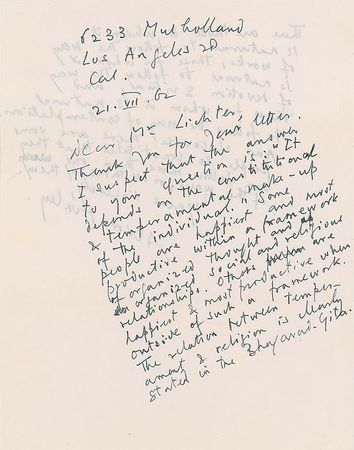 6233 Mulholland
Los Angeles 28
Cal.
21. VII. 62
Dear Mr Lichter,
Thank you for your letter.
I suspect that the answer
to your question is: "It
depends on the constitutional
& temperamental make-up
of the individual". Some
people are happiest and most
productive within a framework
of organized thought and of
organized social and religious
relationships. Others are
happiest & most productive when
outside of such a framework.
The relation between temper-
ament & religion is clearly
stated in the Bhagavad-Gita.